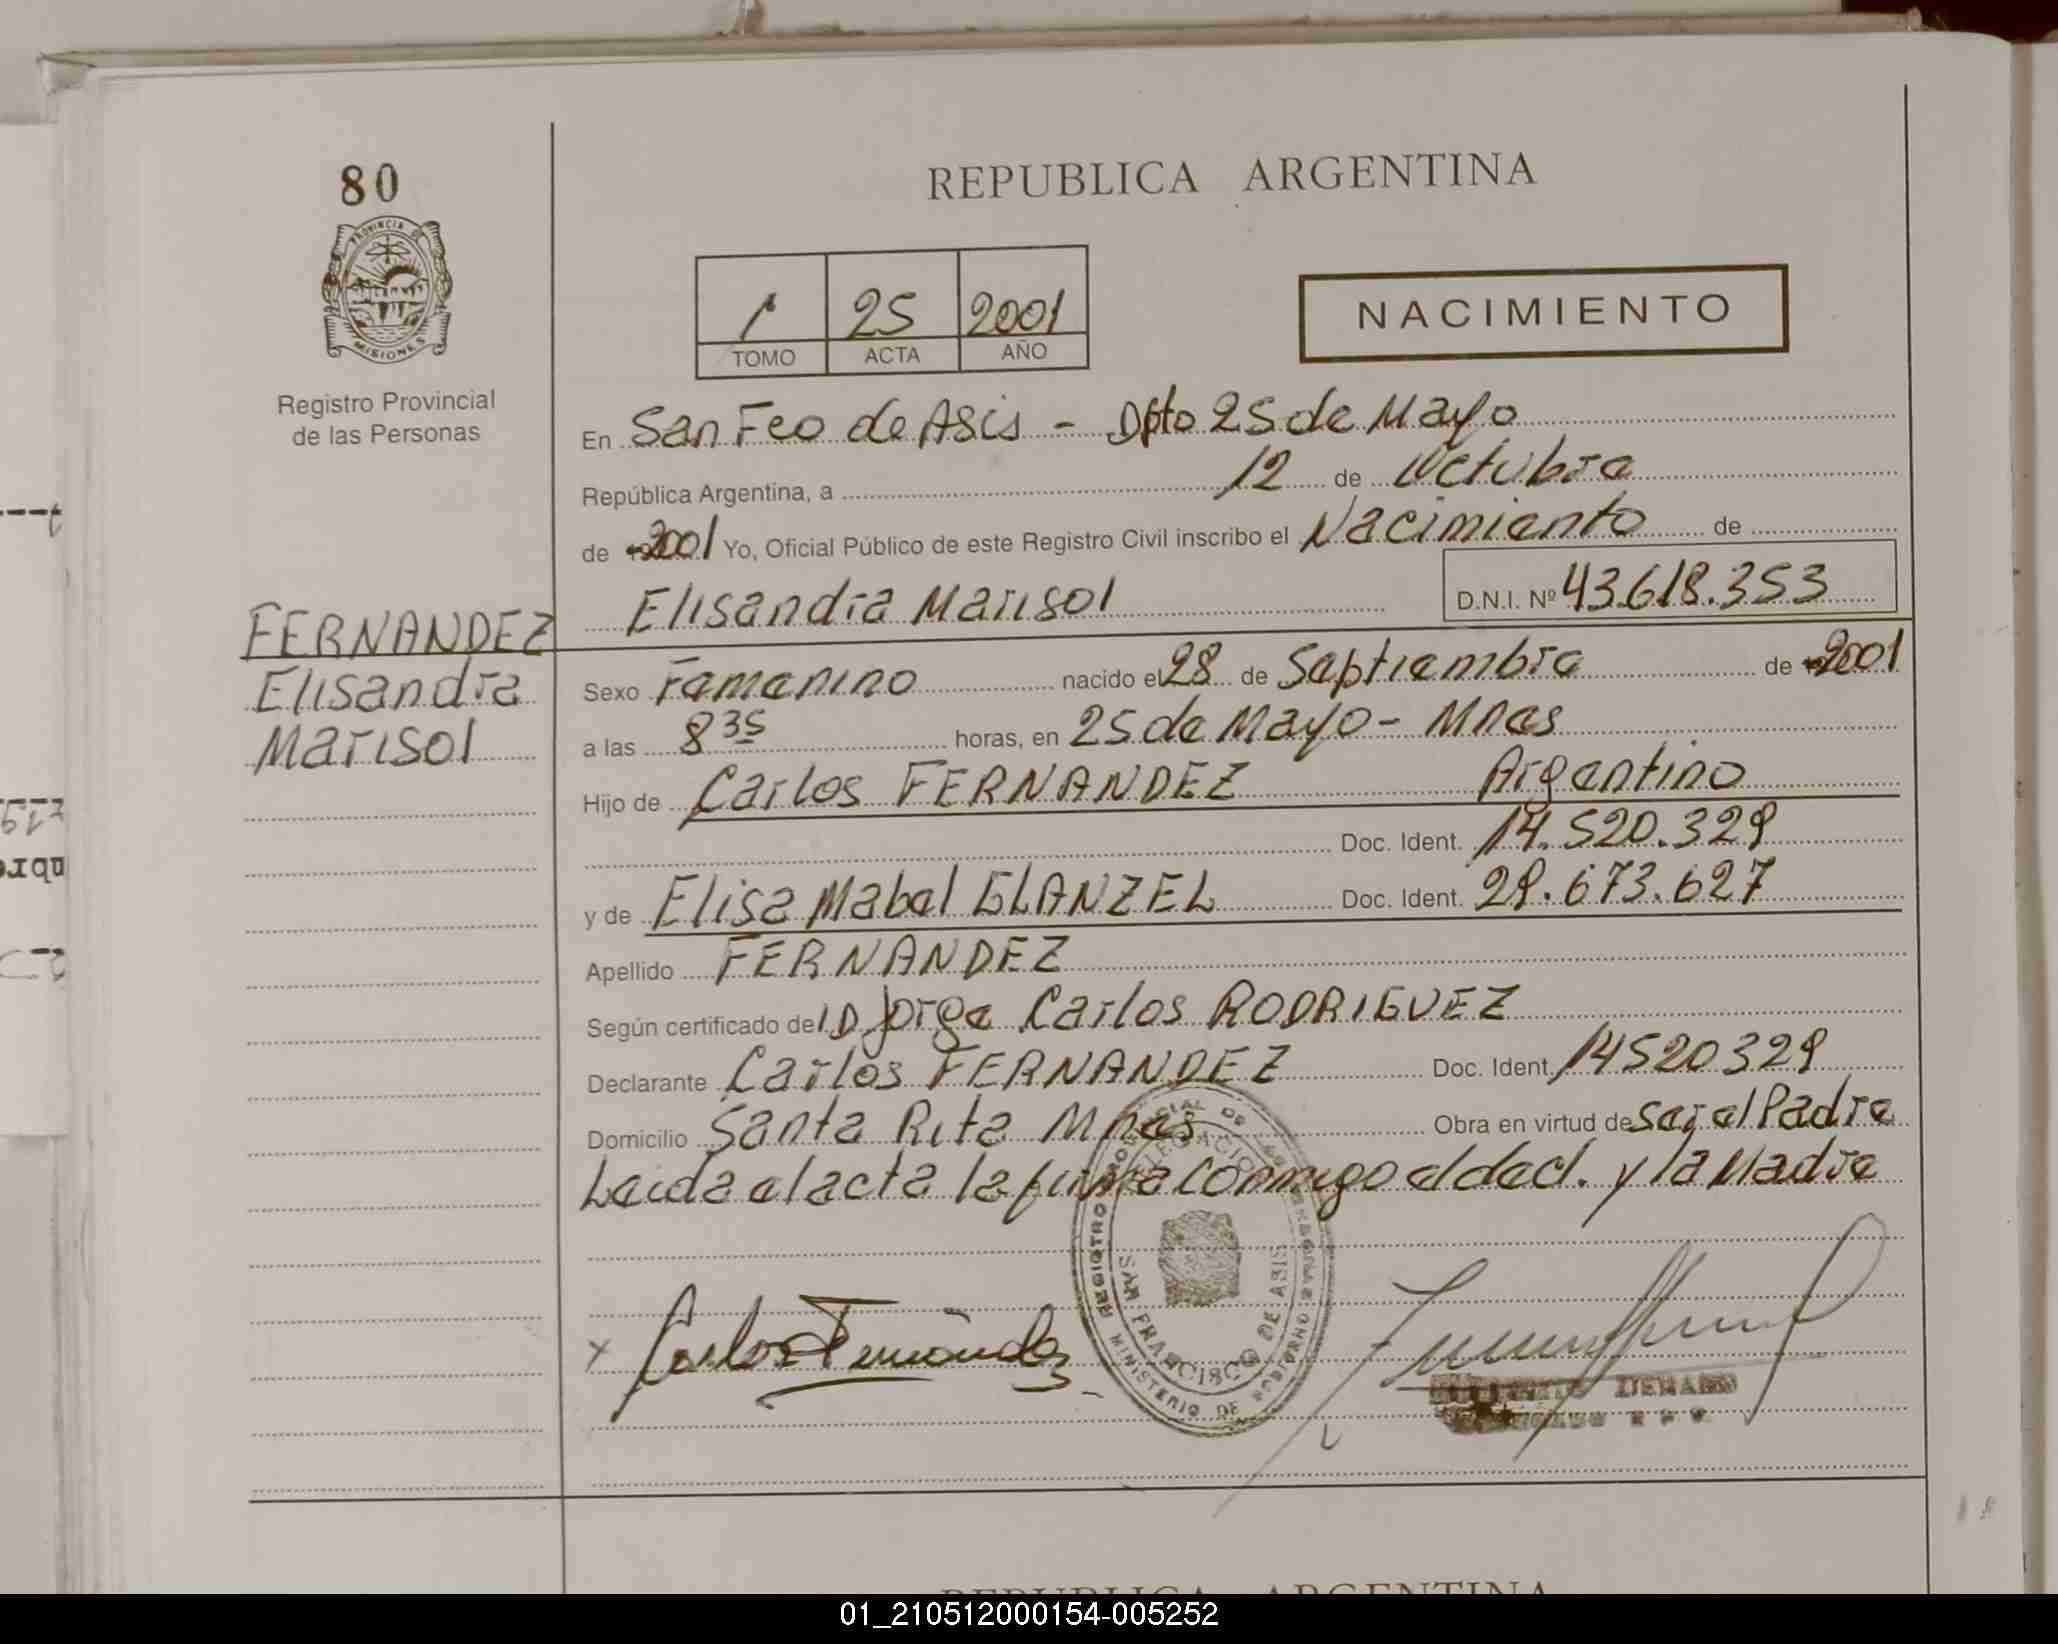 80
PROVINCIA DE
MISIONES
Registro Provincial
de las Personas
FERNANDEZ
Elisandra
Marisol
REPUBLICA ARGENTINA
1 25 2001
TOMO ACTA AÑO
NACIMIENTO
En San Fco de Asis - Dpto 25 de Mayo
República Argentina, a 12 de Octubre
de 2001 Yo, Oficial Público de este Registro Civil inscribo el Nacimiento de
Elisandra Marisol D.N.I. Nº 43.618.353
Sexo Femenino nacido el 28 de Septiembre de 2001
a las 8 35 horas, en 25 de Mayo - Mnes
Hijo de Carlos FERNANDEZ Argentino
Doc. Ident. 14.520.329
y de Elisa Mabel GLANZEL Doc. Ident. 29.673.627
Apellido FERNANDEZ
Según certificado del D Jorge Carlos RODRIGUEZ
Declarante Carlos FERNANDEZ Doc. Ident. 14520329
Domicilio Santa Rita Mnes Obra en virtud de Ser el Padre
Leida el acta la firma conmigo el decl. y la Madre
SAN FRANCISCO DE ASIS
MINISTERIO DE GOBIERNO
x Carlos Fernández
REPUBLICA ARGENTINA
01_210512000154-005252